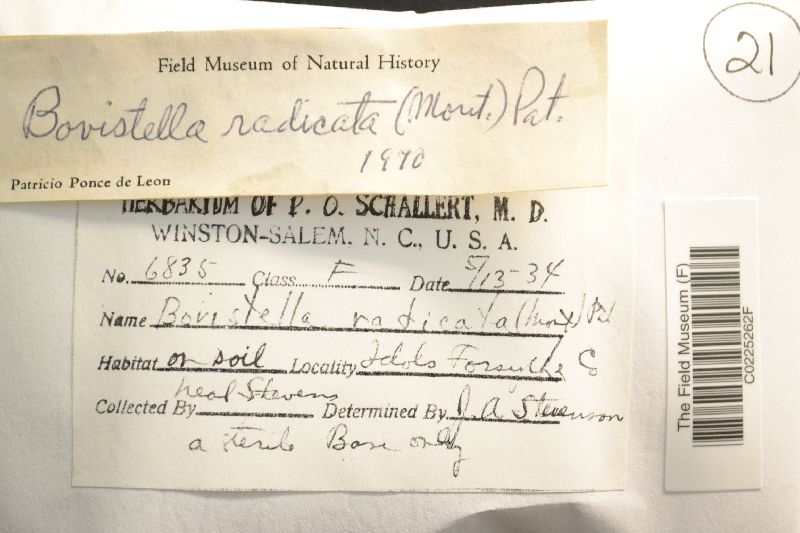 21
Field Museum of Natural History
Bovistella radicata (Mont.) Pat.
1970
Patricio Ponce de Leon
HERBARIUM OF P. O. SCHALLERT, M. D.
WINSTON-SALEM, N. C., U. S. A.
No. 6835 Class F Date 5/13-34
Name Bovistella radicata (Mont) Pat
Habitat on soil Locality Idols Forsythe Co
Collected By Neal Stevens Determined By J. A. Stevenson
a sterile Base only
The Field Museum (F)
C0225262F